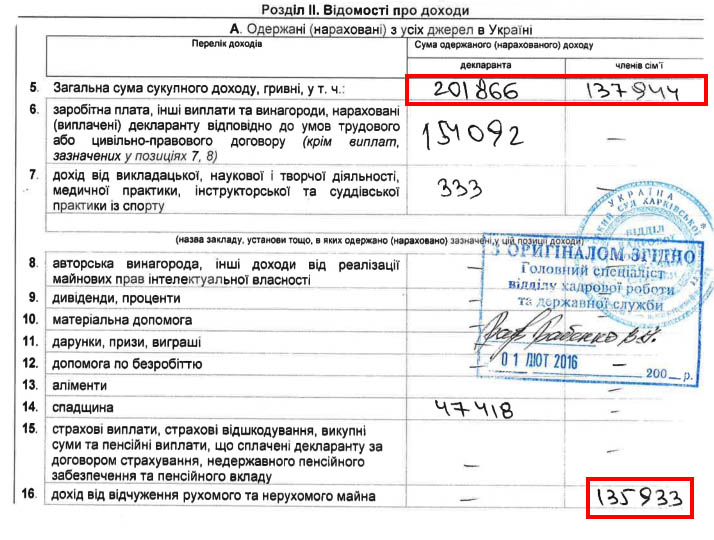 Розділ II. Відомості про доходи
А. Одержані (нараховані) з усіх джерел в Україні
Перелік доходів
Сума одержаного (нарахованого) доходу
декларанта
членів сім'ї
5. Загальна сума сукупного доходу, гривні, у т. ч.: 201866 137944
6. заробітна плата, інші виплати та винагороди, нараховані
(виплачені) декларанту відповідно до умов трудового
або цивільно-правового договору (крім виплат,
зазначених у позиціях 7, 8)
154092 —
7. дохід від викладацької, наукової і творчої діяльності,
медичної практики, інструкторської та суддівської
практики із спорту
333 —
(назва закладу, установи тощо, в яких одержано (нараховано) зазначені у цій позиції доходи)
8. авторська винагорода, інші доходи від реалізації
майнових прав інтелектуальної власності
—
9. дивіденди, проценти —
10. матеріальна допомога —
11. дарунки, призи, виграші —
12. допомога по безробіттю —
13. аліменти — —
14. спадщина 47418 —
15. страхові виплати, страхові відшкодування, викупні
суми та пенсійні виплати, що сплачені декларанту за
договором страхування, недержавного пенсійного
забезпечення та пенсійного вкладу
— —
16. дохід від відчуження рухомого та нерухомого майна — 135933
УКРАЇНА
СУД ХАРКІВСЬКОЇ
ВІДДІЛ
З ОРИГІНАЛОМ ЗГІДНО
Головний спеціаліст
відділу кадрової роботи
та державної служби
01 ЛЮТ 2016
200 р.